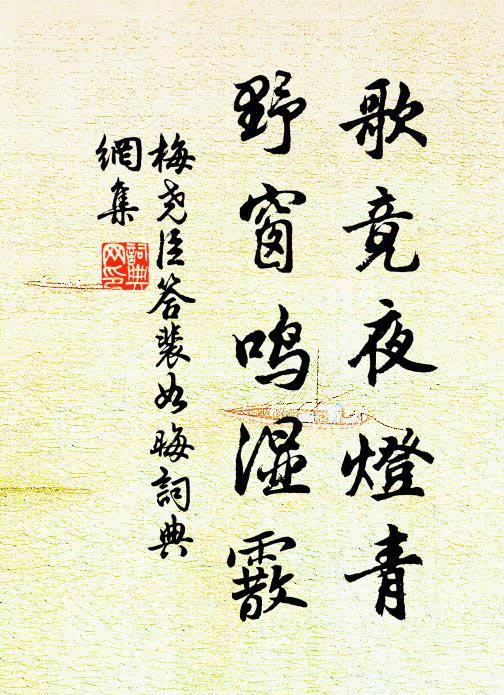 歌竟夜燈青
野窗鸣湿霰
梅尧臣答裴如晦詞典
網集
詞典
网印